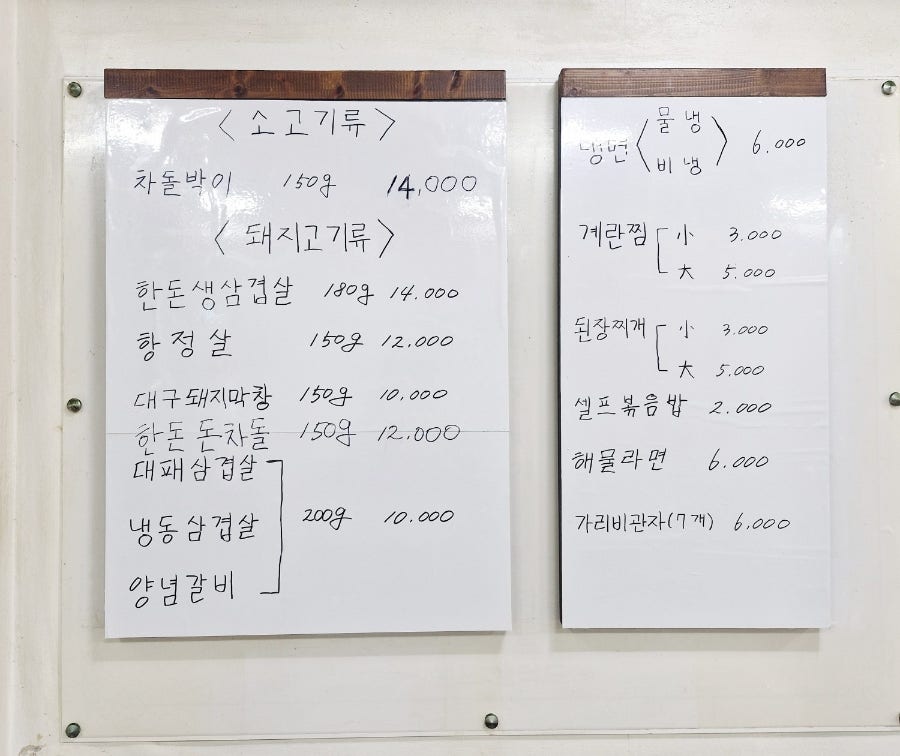 <소고기류>
차돌박이 150g 14,000
<돼지고기류>
한돈생삼겹살 180g 14.000
항정살 150g 12.000
대구돼지막창 150g 10.000
한돈 돈차돌 150g 12.000
대패삼겹살
냉동삼겹살 200g 10.000
양념갈비
물냉
냉면 6.000
비냉
계란찜 小 3.000
大 5.000
된장찌개 小 3.000
大 5.000
셀프볶음밥 2.000
해물라면 6.000
가리비관자(7개) 6.000